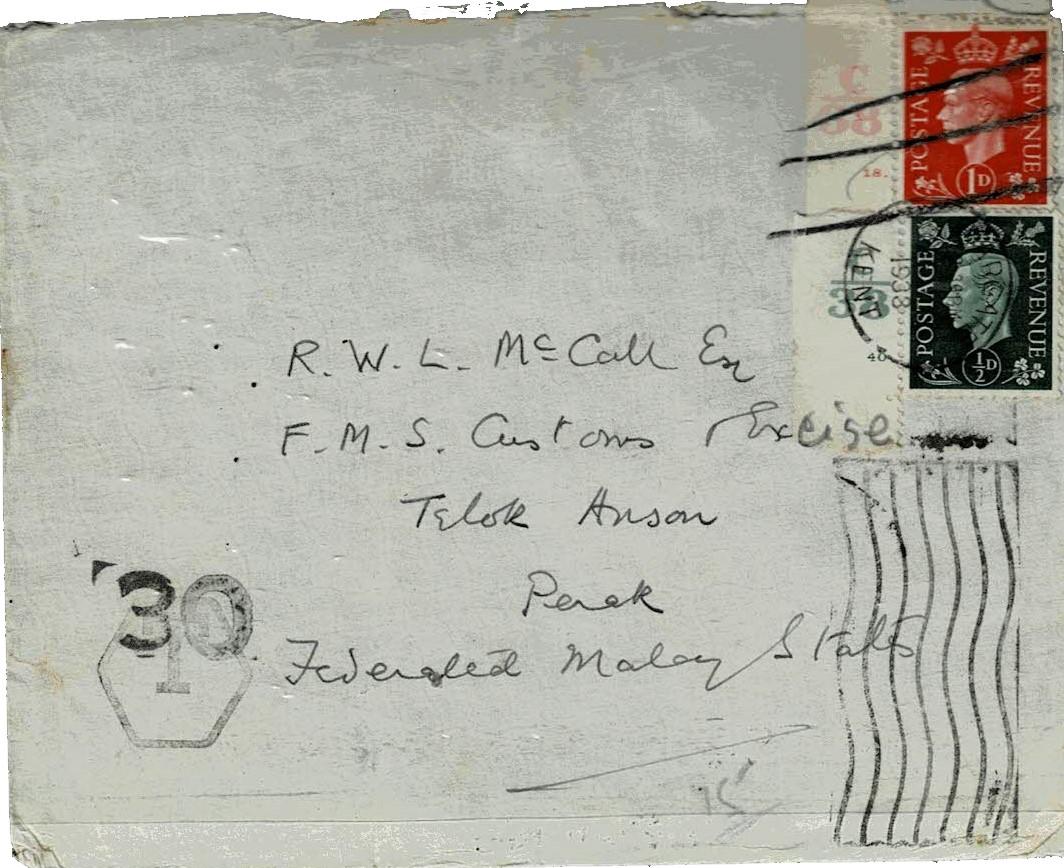 C
38
18.
POSTAGE REVENUE
1D
KENT
1938
38
40
POSTAGE REVENUE
½D
R. W. L. McCall Esq
F. M. S. Customs & Excise
Telok Anson
Perak
Federated Malay States
30
T
15